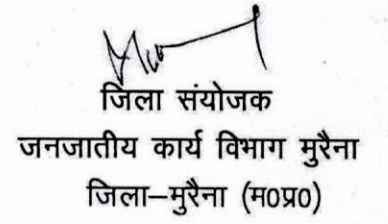 जिला संयोजक
जनजातीय कार्य विभाग मुरैना
जिला–मुरैना (म0प्र0)